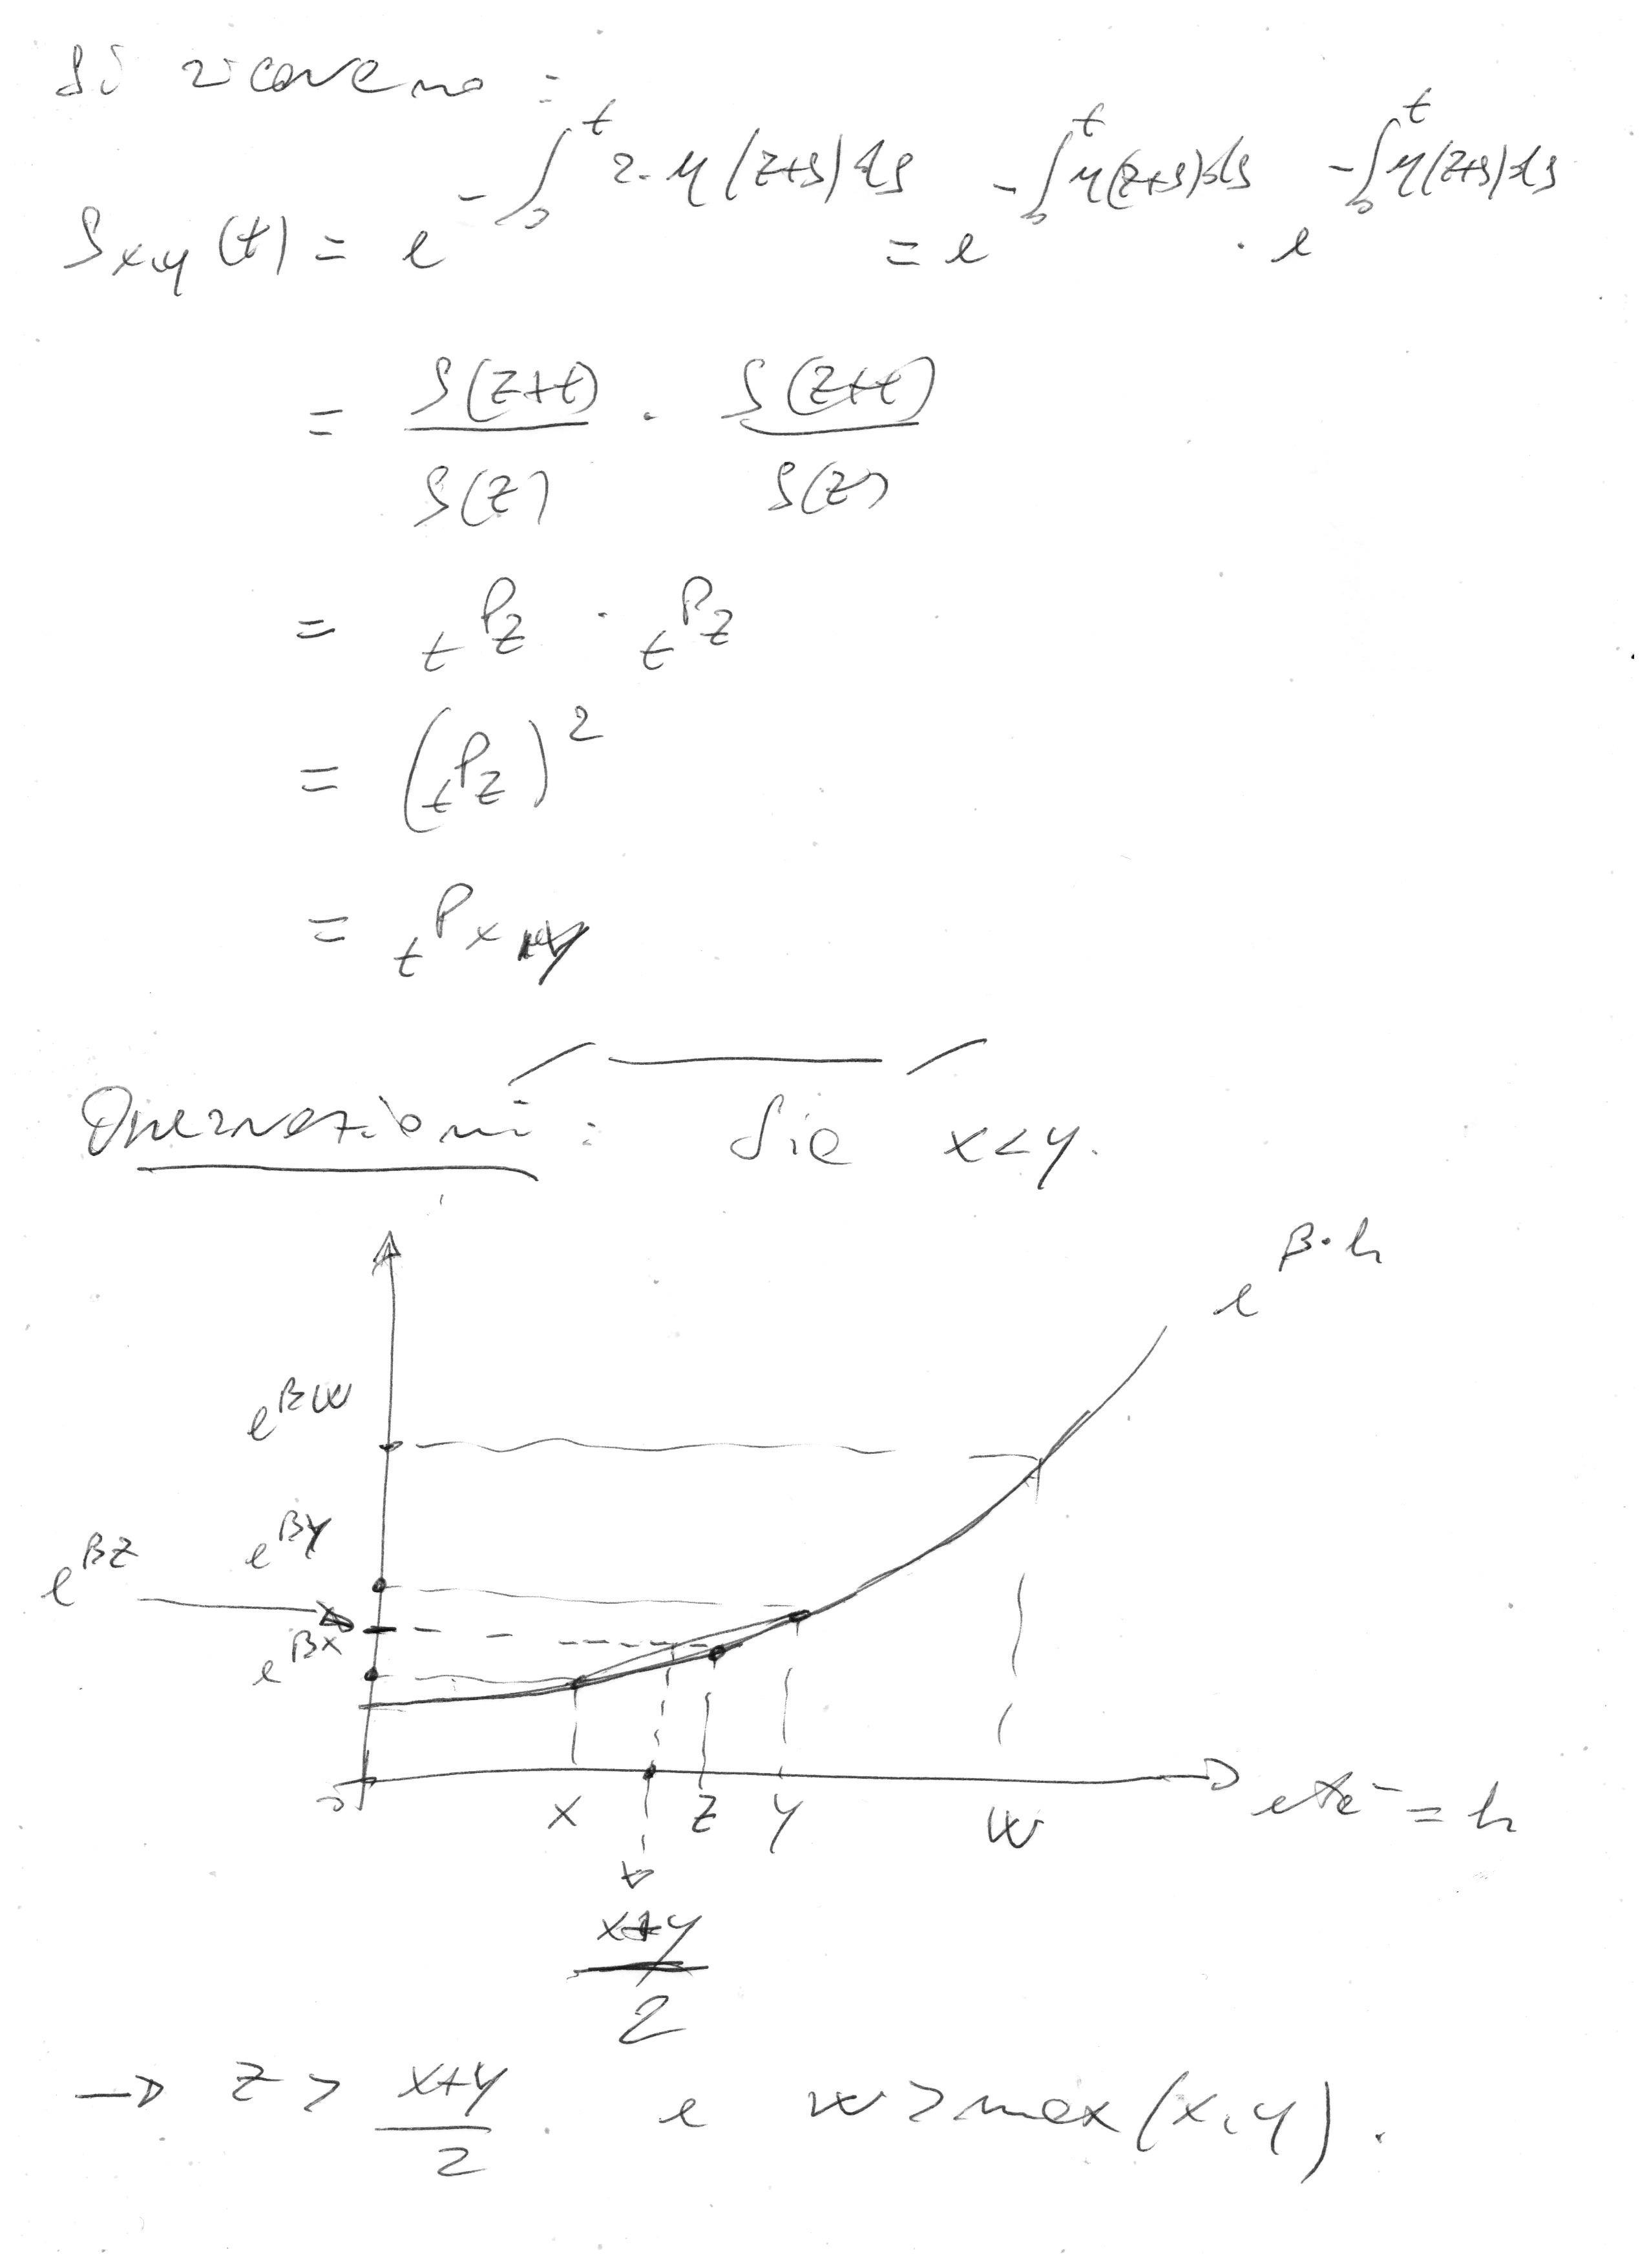 Si ricavano:
S_{x,y}(t) = e^{-∫_0^t 2·μ(z+s)ds} = e^{-∫_0^t μ(z+s)ds} · e^{-∫_0^t μ(z+s)ds}
= S(z+t)/S(z) · S(z+t)/S(z)
= _tP_z · _tP_z
= (_tP_z)^2
= _tP_{xy}
Osservazioni: Sia x<y.
e^{β·h}
e^{βw}
e^{βy}
e^{βz}
e^{βx}
0 x z y w età = h
(x+y)/2
→ z > (x+y)/2 e w > max(x,y).